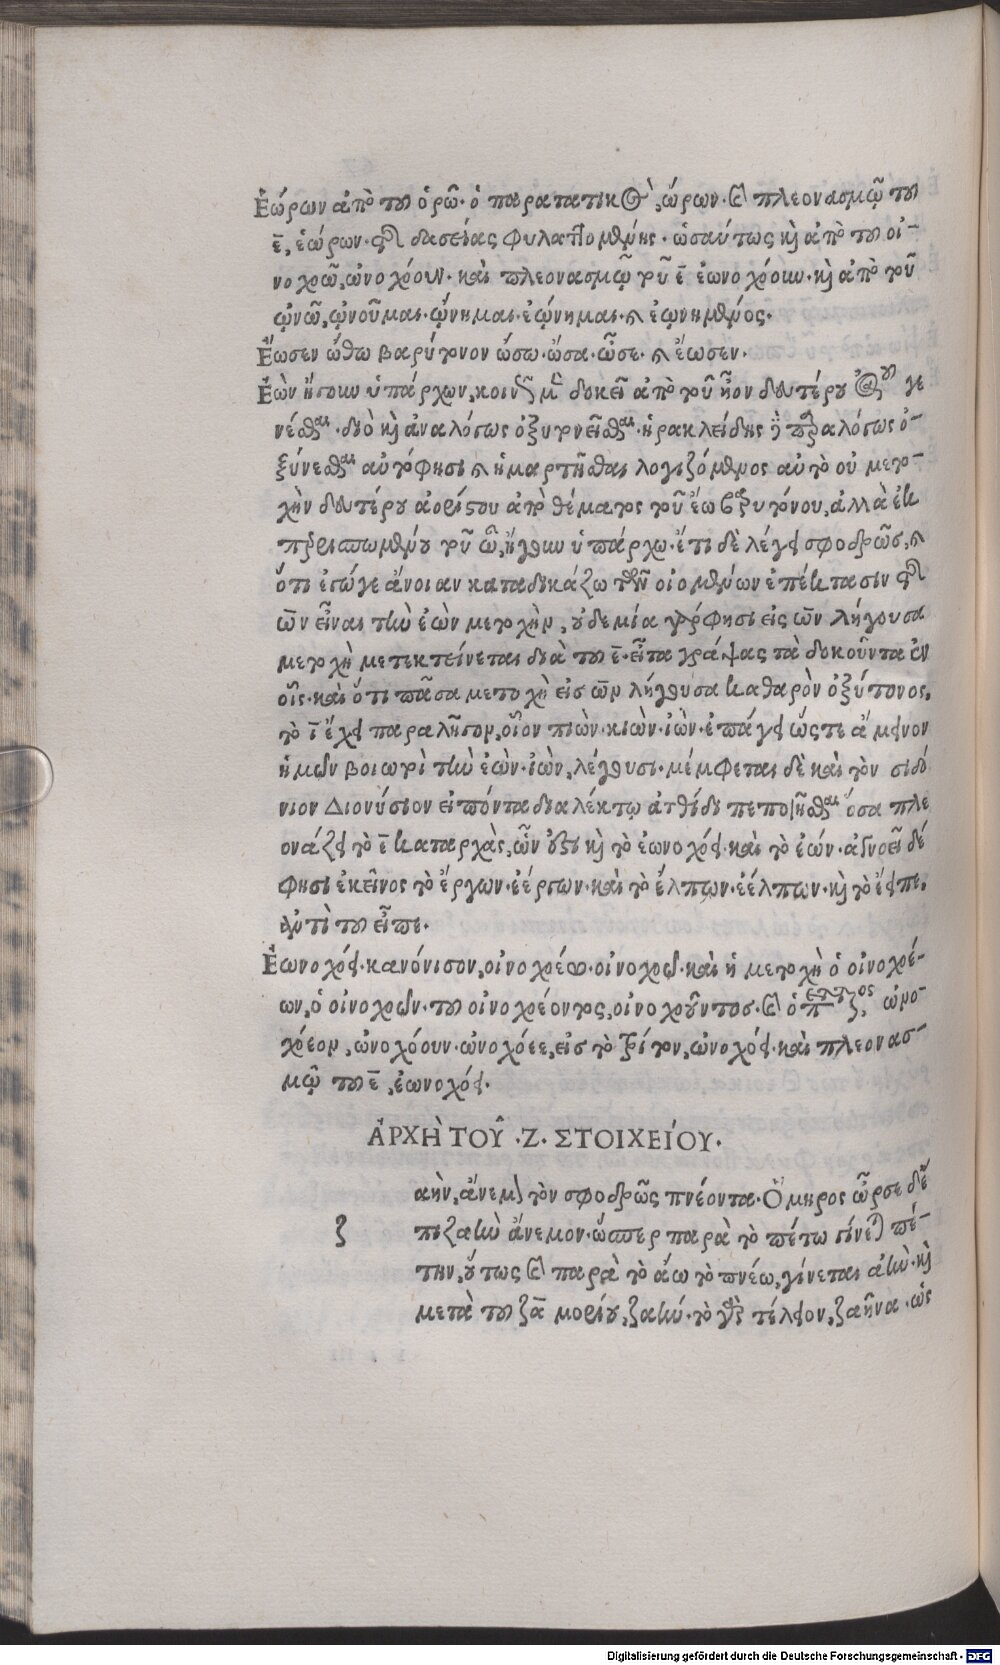 Ἑώρων ἀπὸ τοῦ ὁρῶ· ὁ παρατατικὸς, ὥρων· καὶ πλεονασμῷ τοῦ
ε̄, ἑώρων· τῆς δασείας φυλαττομένης· ὡσαύτως καὶ ἀπὸ τοῦ οἰ-
νοχοῶ, ᾠνοχόουν· καὶ πλεονασμῷ τοῦ ε̄ ἐωνοχόουν· καὶ ἀπὸ τοῦ
ὠνῶ, ὠνοῦμαι· ὤνημαι· ἐώνημαι· καὶ ἐωνημένος.
Ἔωσεν ὤθω βαρύτονον ὤσω· ὦσα· ὦσε· καὶ ἔωσεν.
Ἐὼν ἤγουν ὑπάρχων, κοινὸν μὲν δοκεῖ ἀπὸ τοῦ ἦον δευτέρου γε
νέσθαι· διὸ καὶ ἀναλόγως ὀξυτονεῖσθαι· ἡρακλείδης δὲ παραλόγως ὀ-
ξύνεσθαι αὐτό φησι καὶ ἡμαρτῆσθαι λογιζόμενος αὐτὸ οὐ μετο-
χὴν δευτέρου ἀορίστου ἀπὸ θέματος τοῦ ἔω βαρυτόνου, ἀλλὰ ἐκ
περισπωμένου τοῦ ὦ, ἤγουν ὑπάρχω· ἔτι δὲ λέγει σφοδρῶς, καὶ
ὅτι ἔγωγε ἄνοιαν καταδικάζω τῶν οἰομένων ἐπέκτασιν τῆς
ὢν εἶναι τὴν ἐὼν μετοχὴν, οὐδεμία γάρ φησι εἰς ων λήγουσα
μετοχὴ μετεκτείνεται διὰ τοῦ ε̄· εἶτα γράψας τὰ δοκοῦντα ἐν
οἷς· καὶ ὅτι πᾶσα μετοχὴ εἰς ων λήγουσα καθαρὸν ὀξύτονος,
τὸ ῑ ἔχει παραλῆγον, οἷον πιὼν· κιὼν· ἰὼν· ἐπάγει ὥστε ἄμεινον
ἡμῶν βοιωτοὶ τὴν ἐὼν· ἰὼν, λέγουσι· μέμφεται δὲ καὶ τὸν σιδό
νιον Διονύσιον εἰπόντα διαλέκτῳ ἀτθίδι πεποιῆσθαι ὅσα πλε
ονάζει τὸ ε̄ καταρχὰς, ὧν οὖσι καὶ τὸ ἐωνοχόει· καὶ τὸ ἐών· ἀγνοεῖ δέ
φησι ἐκεῖνος τὸ ἔργων· ἐέργων· καὶ τὸ ἔλπων· ἐέλπων· καὶ τὸ ἔειπε.
ἀντὶ τοῦ εἶπε.
Ἐωνοχόει· κανόνισον, οἰνοχοέω· οἰνοχοῶ· καὶ ἡ μετοχὴ ὁ οἰνοχοέ-
ων, ὁ οἰνοχοῶν· τοῦ οἰνοχοέοντος, οἰνοχοῦντος· καὶ ὁ ᾠνο-
χόεον, ᾠνοχόουν· ᾠνοχόεε, εἰς τὸ τρίτον, ᾠνοχόει· καὶ πλεονασ-
μῷ τοῦ ε̄, ἐωνοχόει.
ἈΡΧῊ ΤΟΥ͂ ·Ζ· ΣΤΟΙΧΕΊΟΥ.
ζ
αὴν, ἄνεμον τὸν σφοδρῶς πνέοντα· Ὅμηρος ὦρσε δ' ἐ
πι ζαὴν ἄνεμον· ὥσπερ παρὰ τὸ πέτω γίνεται πέ-
την, οὕτως καὶ παρὰ τὸ ἄω τὸ πνέω, γίνεται ἀὴν· καὶ
μετὰ τοῦ ζᾱ μορίου, ζαήν· τὸ γὰρ τέλειον, ζαῆνα· ὡς